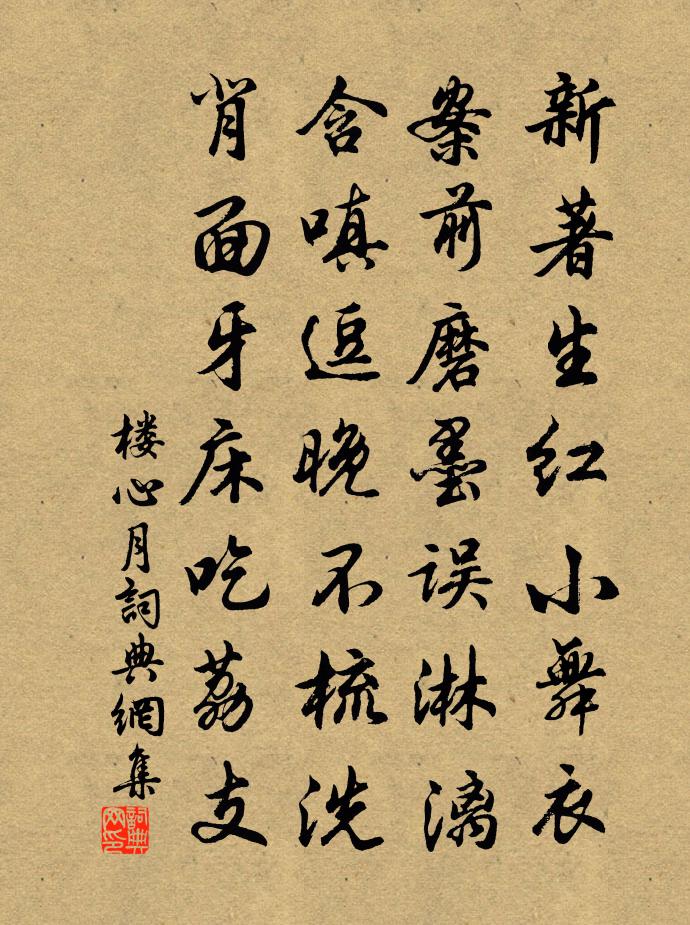 新著生红小舞衣
案前磨墨误淋漓
含嗔逗晚不梳洗
背面牙床吃荔支
楼心月詞典網集
詞典网印